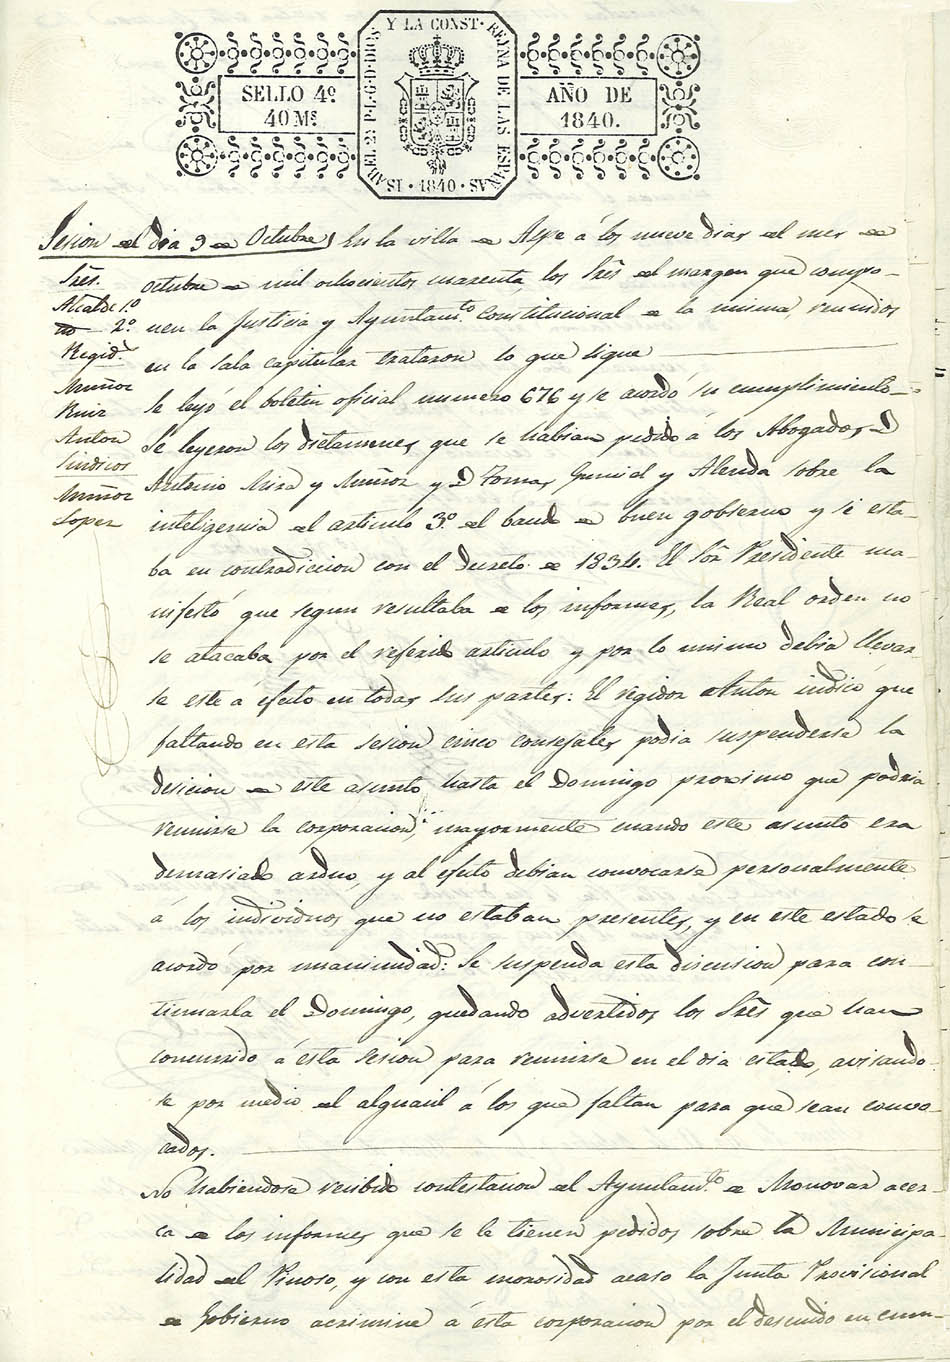 ISABEL 2ª P.L.G.D.DIOS Y LA CONST. REYNA DE LAS ESPAÑAS
· 1840 ·
SELLO 4º
40 Ms.
AÑO DE
1840.
Sesion del dia 9 de Octubre
Sres.
Alcalde 1º
2º
Regid.s
Muñoz
Ruiz
Anton
Sindicos
Muñoz
Lopez
En la villa de Aspe á los nueve dias del mes de
octubre de mil ochocientos cuarenta los Sres del margen que compo-
nen la Justicia y Ayuntamto. Constitucional de la misma, reunidos
en la sala capitular trataron lo que sigue
Se leyó el boletin oficial numero 676 y se acordó su cumplimiento.
Se leyeron los dictamenes que se habian pedido á los Abogados D
Antonio Mira y Muñoz y D Tomas y Alenda sobre la
inteligencia del articulo 3º del bando de buen gobierno y si esta-
ba en contradiccion con el Decreto de 1834. El Sor Presidente ma-
nifestó que segun resultaba de los informes, la Real orden no
se atacaba por el referido articulo y por lo mismo debia llevar-
se este á efecto en todas sus partes: El regidor Anton indicó que
faltando en esta sesion cinco consejales podia suspenderse la
desicion de este asunto hasta el Domingo proximo que podria
reunirse la corporacion, mayormente cuando este asunto era
demasiado arduo, y al efecto debian convocarse personalmente
á los individuos que no estaban presentes, y en este estado se
acordó por unanimidad: Se suspenda esta discusion para con-
tinuarla el Domingo, quedando advertidos los Sres que han
concurrido á esta sesion para reunirse en el dia estado, avisando-
se por medio del alguacil á los que faltan para que sean convo-
cados.
No habiendose recibido contestacion del Ayuntamto. de Monovar acer-
ca de los informes que se le tienen pedidos sobre la Municipa-
lidad del Pinoso, y con esta morosidad acaso la Junta Provisional
de Gobierno acrimine á esta corporacion por el descuido en cum-